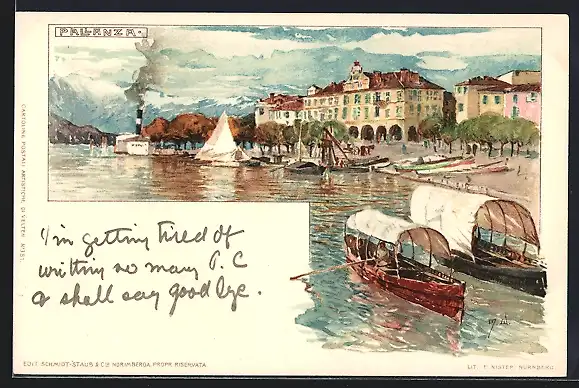 PALLANZA.
I'm getting tired of
writing so many P.C
& shall say good bye.
CARTOLINE POSTALI ARTISTICHE DI VELTEN N° 381.
EDIT. SCHMIDT-STAUB & Cie NORIMBERGA. PROPR. RISERVATA
LIT. E. NISTER, NURNBERG.